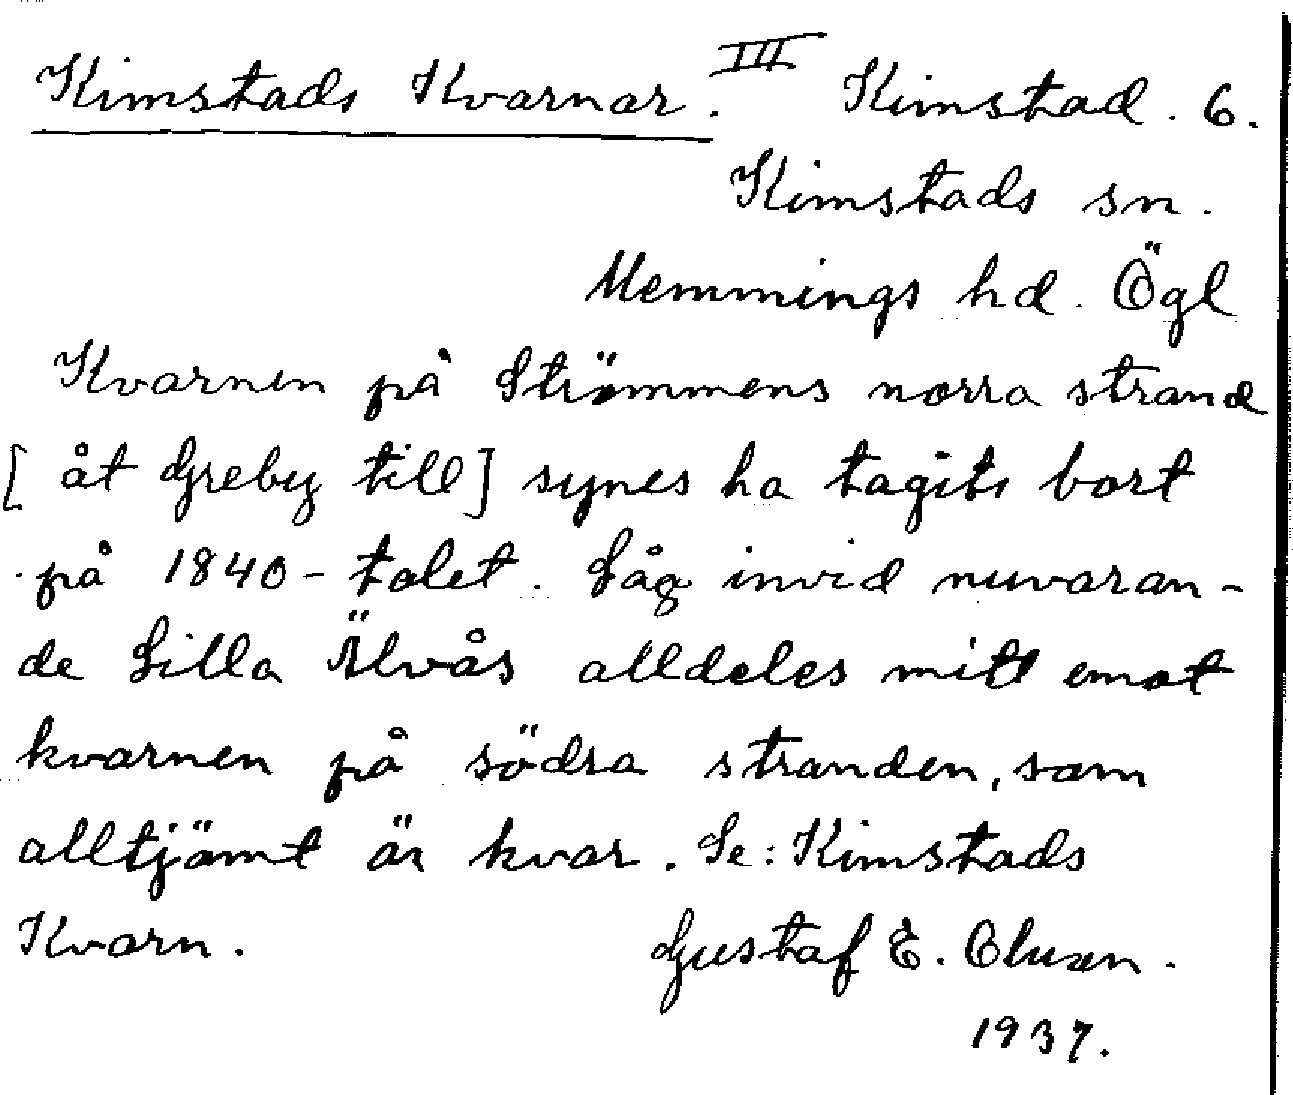 Kimstads Kvarnar. III Kimstad. 6.
Kimstads sn.
Memmings hd. Ögl
Kvarnen på Strömmens norra strand
[ åt Greby till] synes ha tagits bort
på 1840-talet. Låg invid nuvaran-
de Lilla Älvås alldeles mitt emot
kvarnen på södra stranden, som
alltjämt är kvar. Se: Kimstads
Kvarn. Gustaf E. Olusen.
1937.